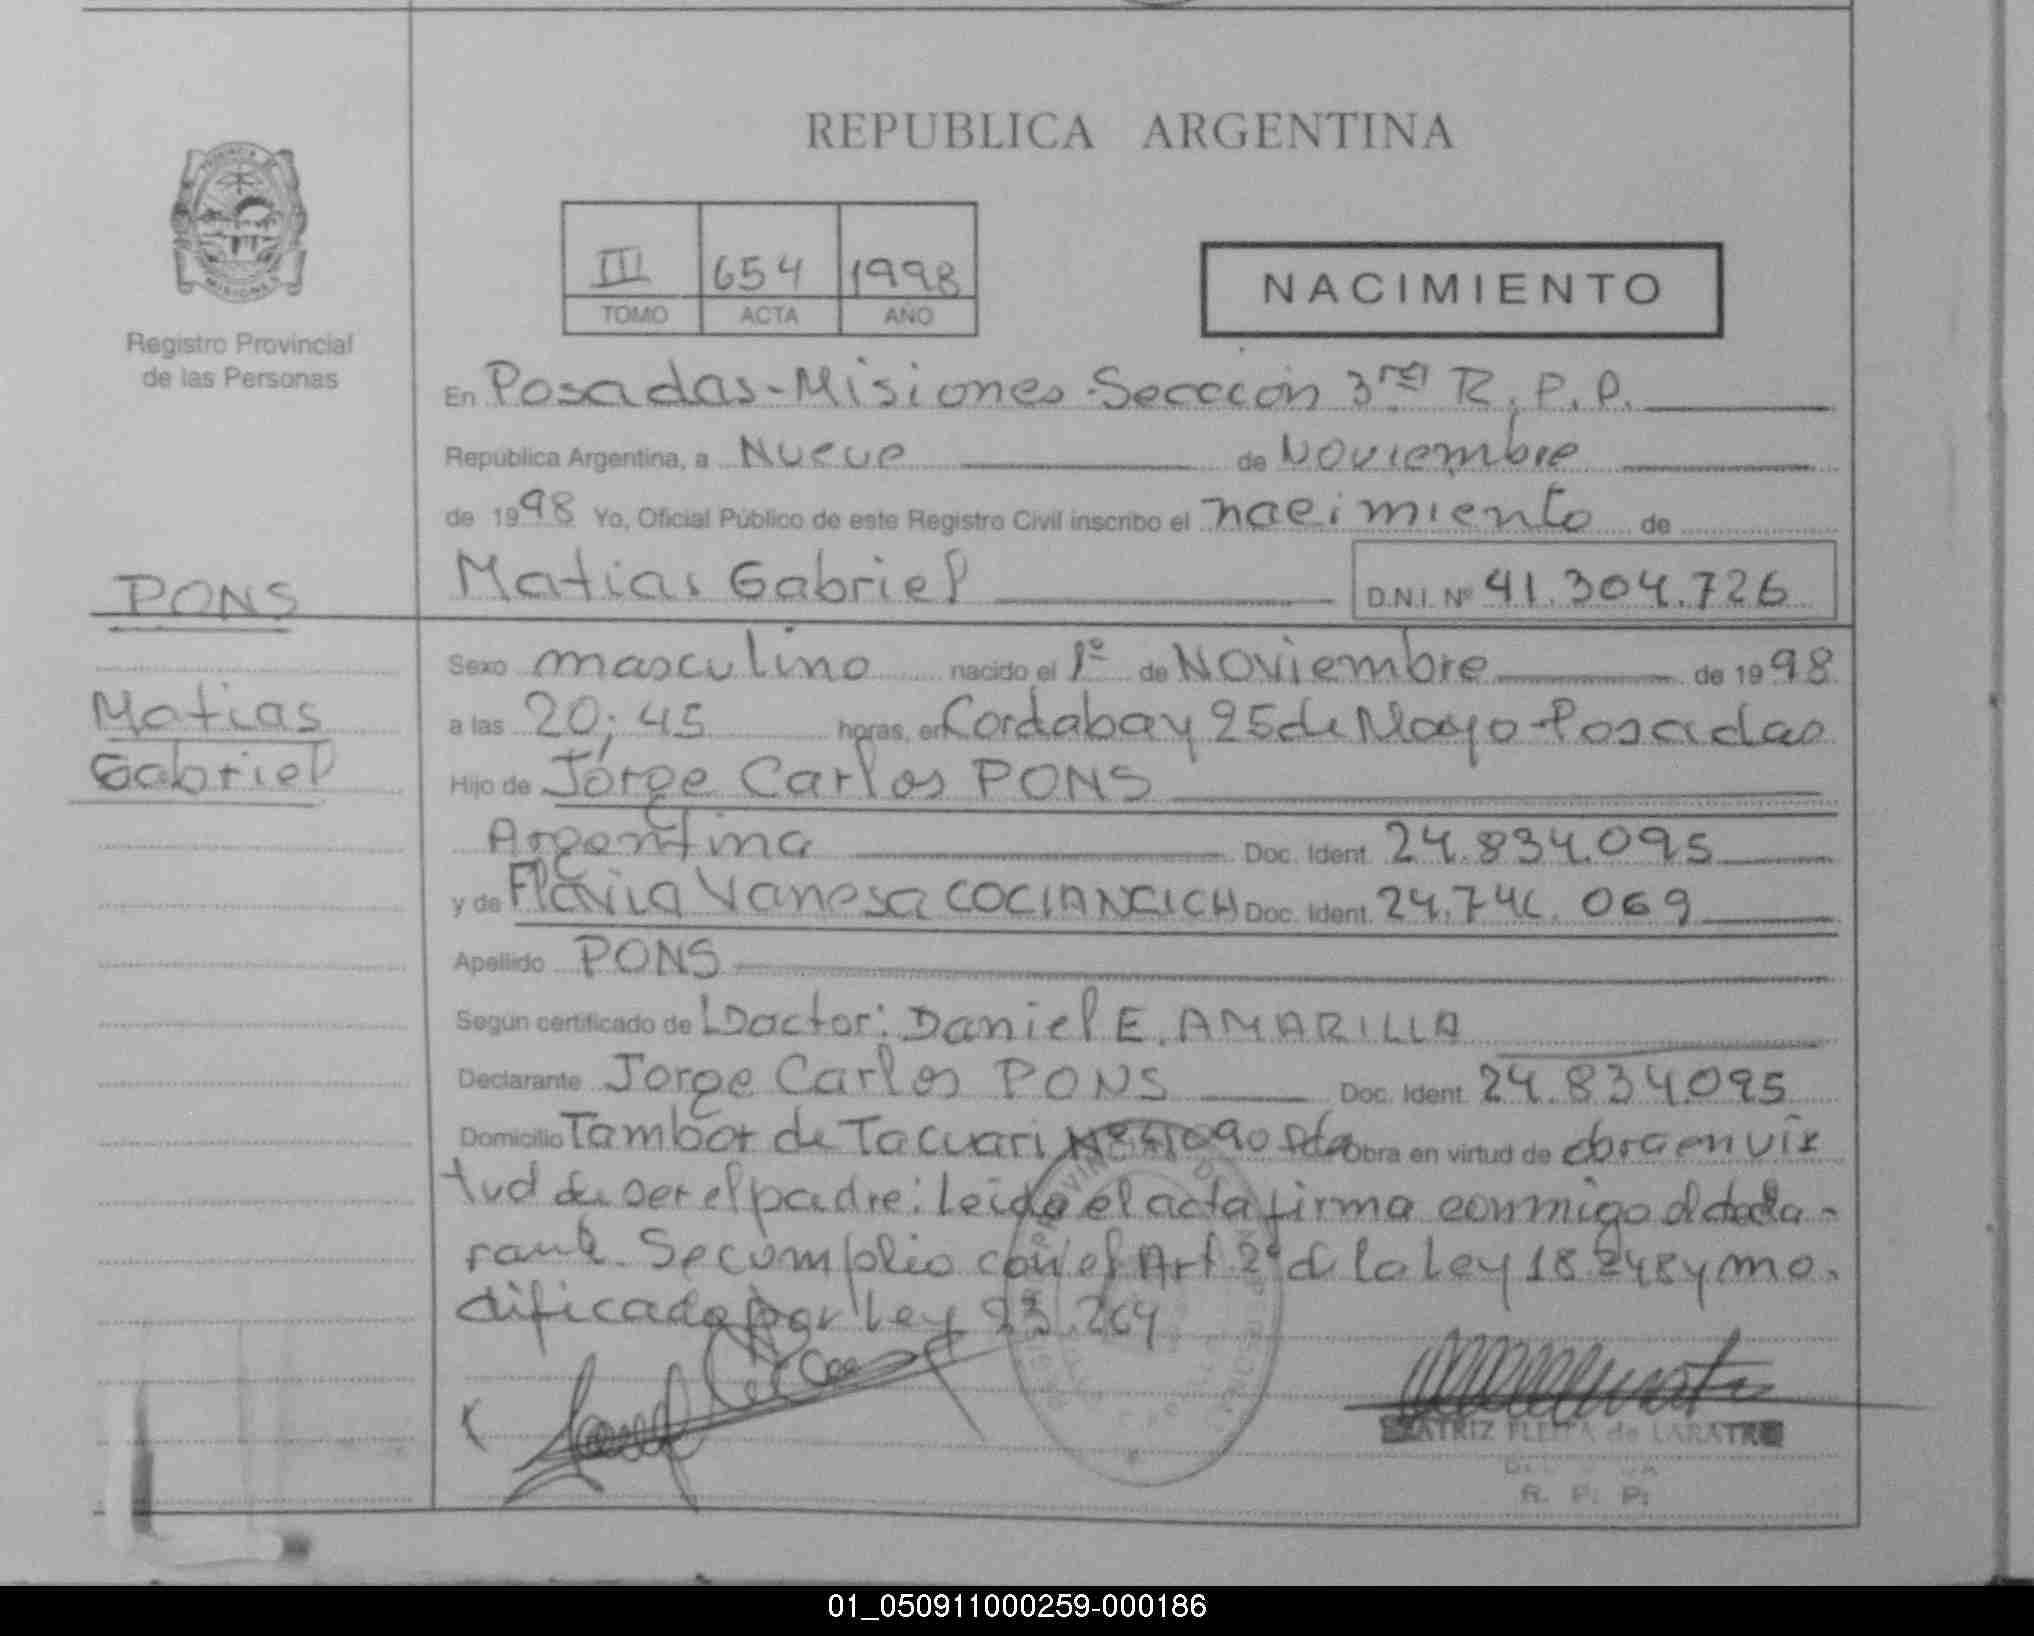 REPUBLICA ARGENTINA
III 654 1998
TOMO ACTA AÑO
NACIMIENTO
PROVINCIA DE
MISIONES
Registro Provincial
de las Personas
En Posadas-Misiones-Sección 3ra R.P.P.
República Argentina, a Nueve de Noviembre
de 1998 Yo, Oficial Público de este Registro Civil inscribo el nacimiento de
Matias Gabriel D.N.I. Nº 41.304.726
PONS
Matias
Gabriel
Sexo masculino nacido el 1º de Noviembre de 1998
a las 20;45 horas, en Cordaba y 25 de Mayo-Posadas
Hijo de Jorge Carlos PONS
Argentina Doc. Ident. 24.834.095
y de Flavia Vanesa COCIANCICH Doc. Ident. 069
Apellido PONS
Según certificado de Doctor: Daniel E. AMARILLA
Declarante Jorge Carlos PONS Doc. Ident. 24.834.095
Domicilio Tambor de Tacuari Obra en virtud de obra en vir
tud de ser el padre: Leida el acta firma conmigo el decla-
rante. Se cumplio con el Art. 2º d la Ley 18.248 y mo.
dificado por Ley 23.264
BEATRIZ FLEITA de LABATR
R. P. P.
01_050911000259-000186